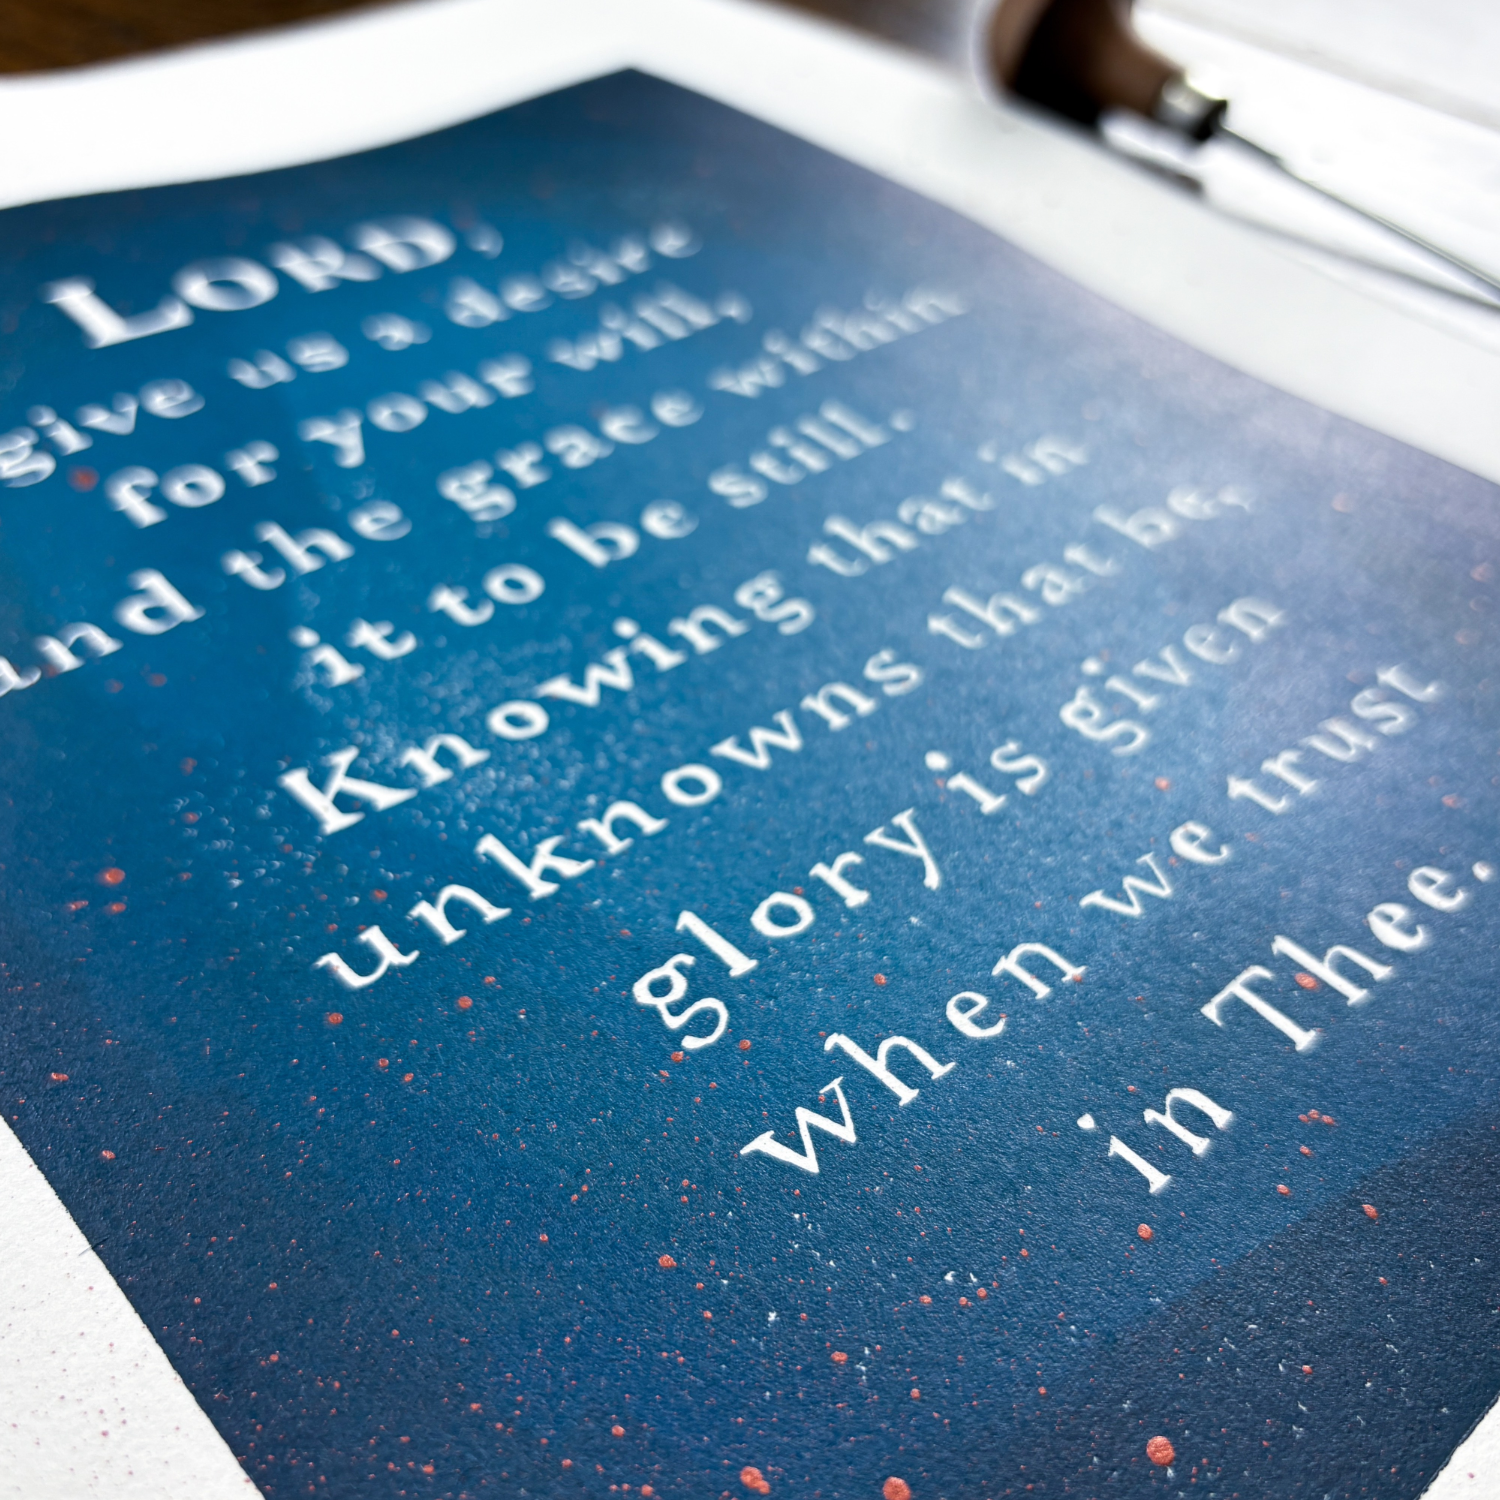 LORD,
give us a desire
for your will,
and the grace within
it to be still.
Knowing that in
unknowns that be,
glory is given
when we trust
in Thee.